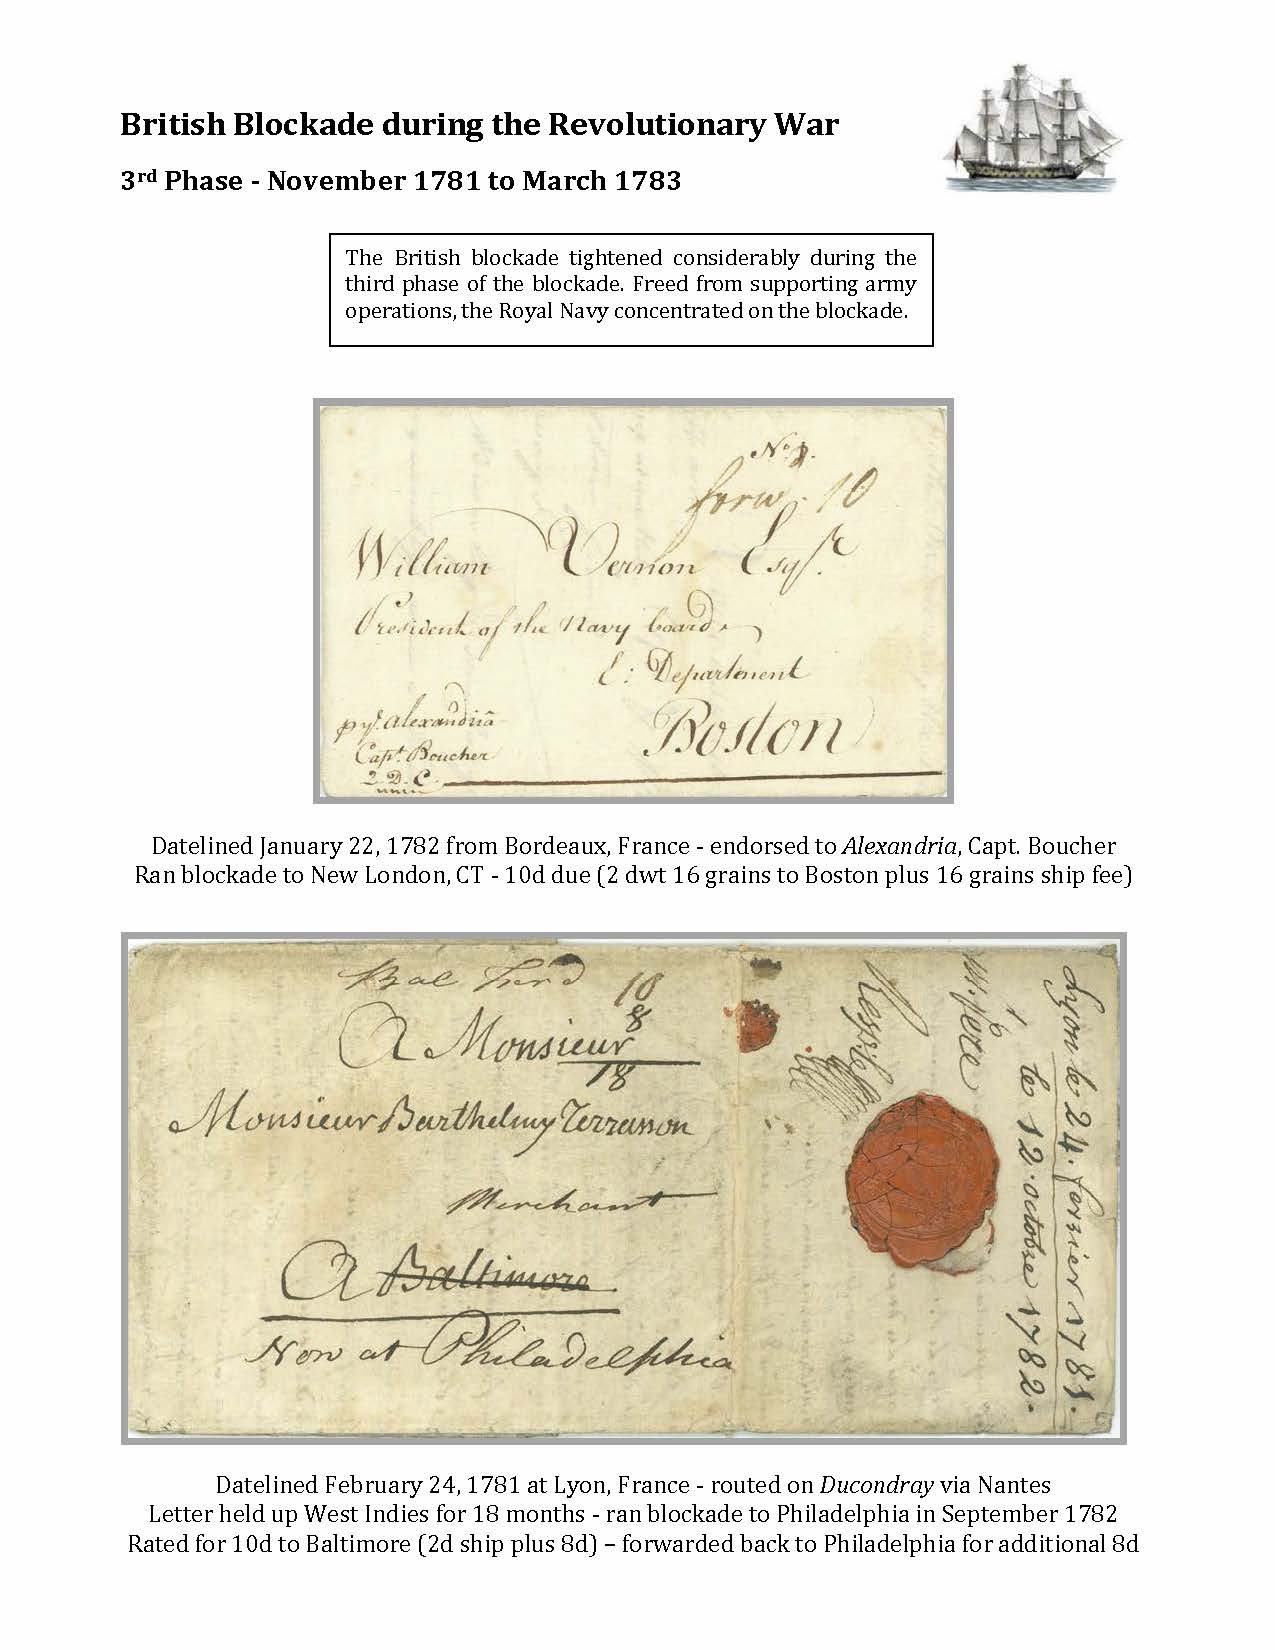 British Blockade during the Revolutionary War
3rd Phase - November 1781 to March 1783
The British blockade tightened considerably during the
third phase of the blockade. Freed from supporting army
operations, the Royal Navy concentrated on the blockade.
No.
forw. 10
William Vernon Esqr.
President of the Navy board
E: Department
Boston
pr. Alexandria
Capt. Boucher
2. D. C.
Datelined January 22, 1782 from Bordeaux, France - endorsed to Alexandria, Capt. Boucher
Ran blockade to New London, CT - 10d due (2 dwt 16 grains to Boston plus 16 grains ship fee)
Bal 10
8
A Monsieur
18
Monsieur Barthelmy Terrasson
Merchant
A Baltimore
Now at Philadelphia
Lyon le 24. fevrier 1781.
le 12. octobre 1782.
Datelined February 24, 1781 at Lyon, France - routed on Ducondray via Nantes
Letter held up West Indies for 18 months - ran blockade to Philadelphia in September 1782
Rated for 10d to Baltimore (2d ship plus 8d) – forwarded back to Philadelphia for additional 8d